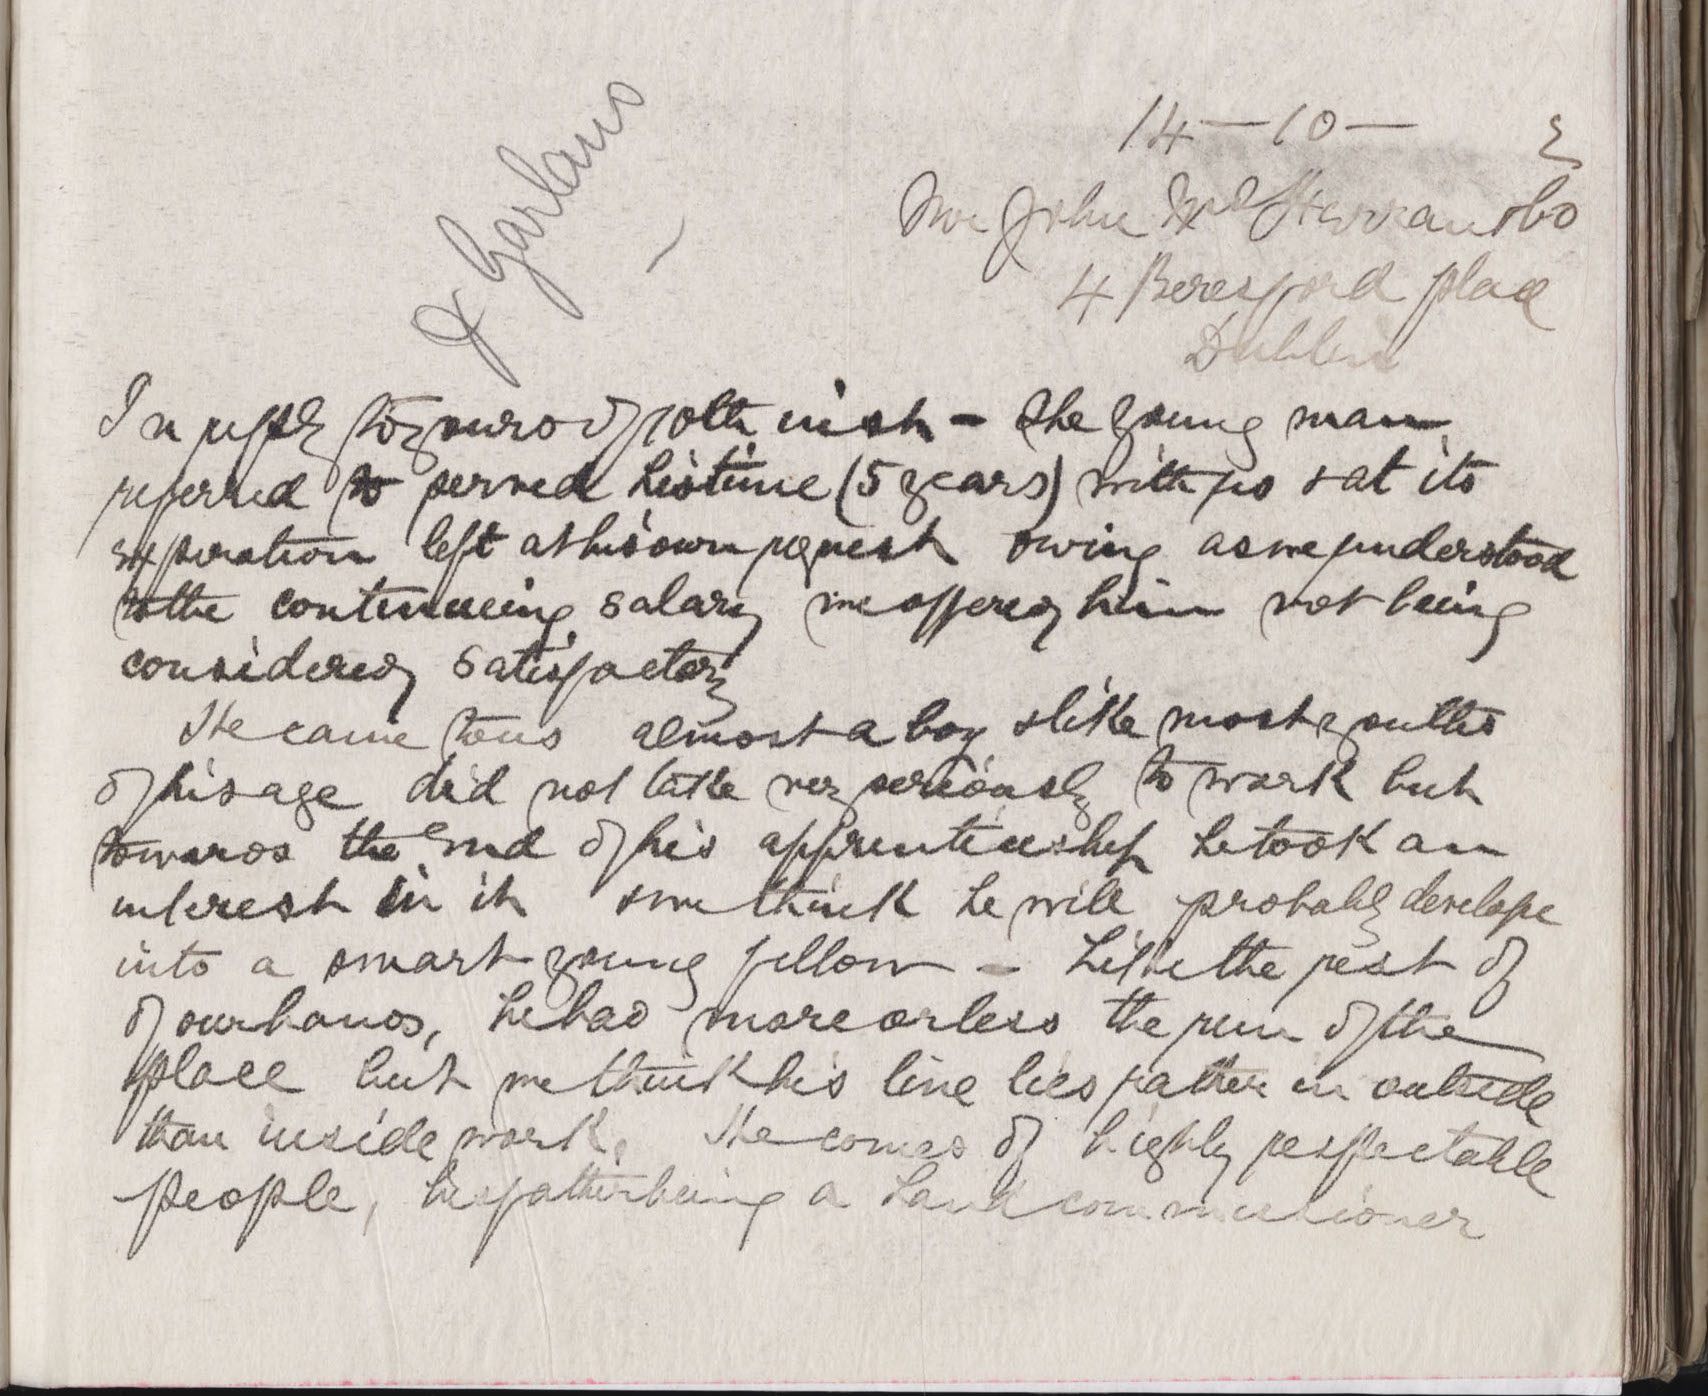 & Garland
14 — 10 — 3
Mr John McFerran & Co
4 Beresford place
Dublin
In reply to yours of 10th inst – the young man
referred to served his time (5 years) with us & at its
expiration left at his own request owing as we understood
to the continuing salary we offered him not being
considered satisfactory
He came to us almost a boy & like most youths
of his age did not take very seriously to work but
towards the end of his apprenticeship he took an
interest in it & we think he will probably develope
into a smart young fellow – Like the rest of
of our hands, he had more or less the run of the
place but we think his line lies rather in outside
than inside work, He comes of highly respectable
people, his father being a Land commissioner